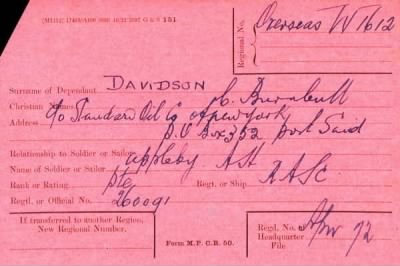 Regional No. Overseas W 1612
Surname of Dependant DAVIDSON
Christian Names
Address c/o Standard Oil Co of New York
P.O Box 352 Port Said
Relationship to Soldier or Sailor
Name of Soldier or Sailor Appleby A H
Rank or Rating Pte Regt. or Ship RASC
Regtl. or Official No. 260091
If transferred to another Region,
New Regional Number.
Form M.P.C.B. 50.
Regd. No.
Headquarter
File
72